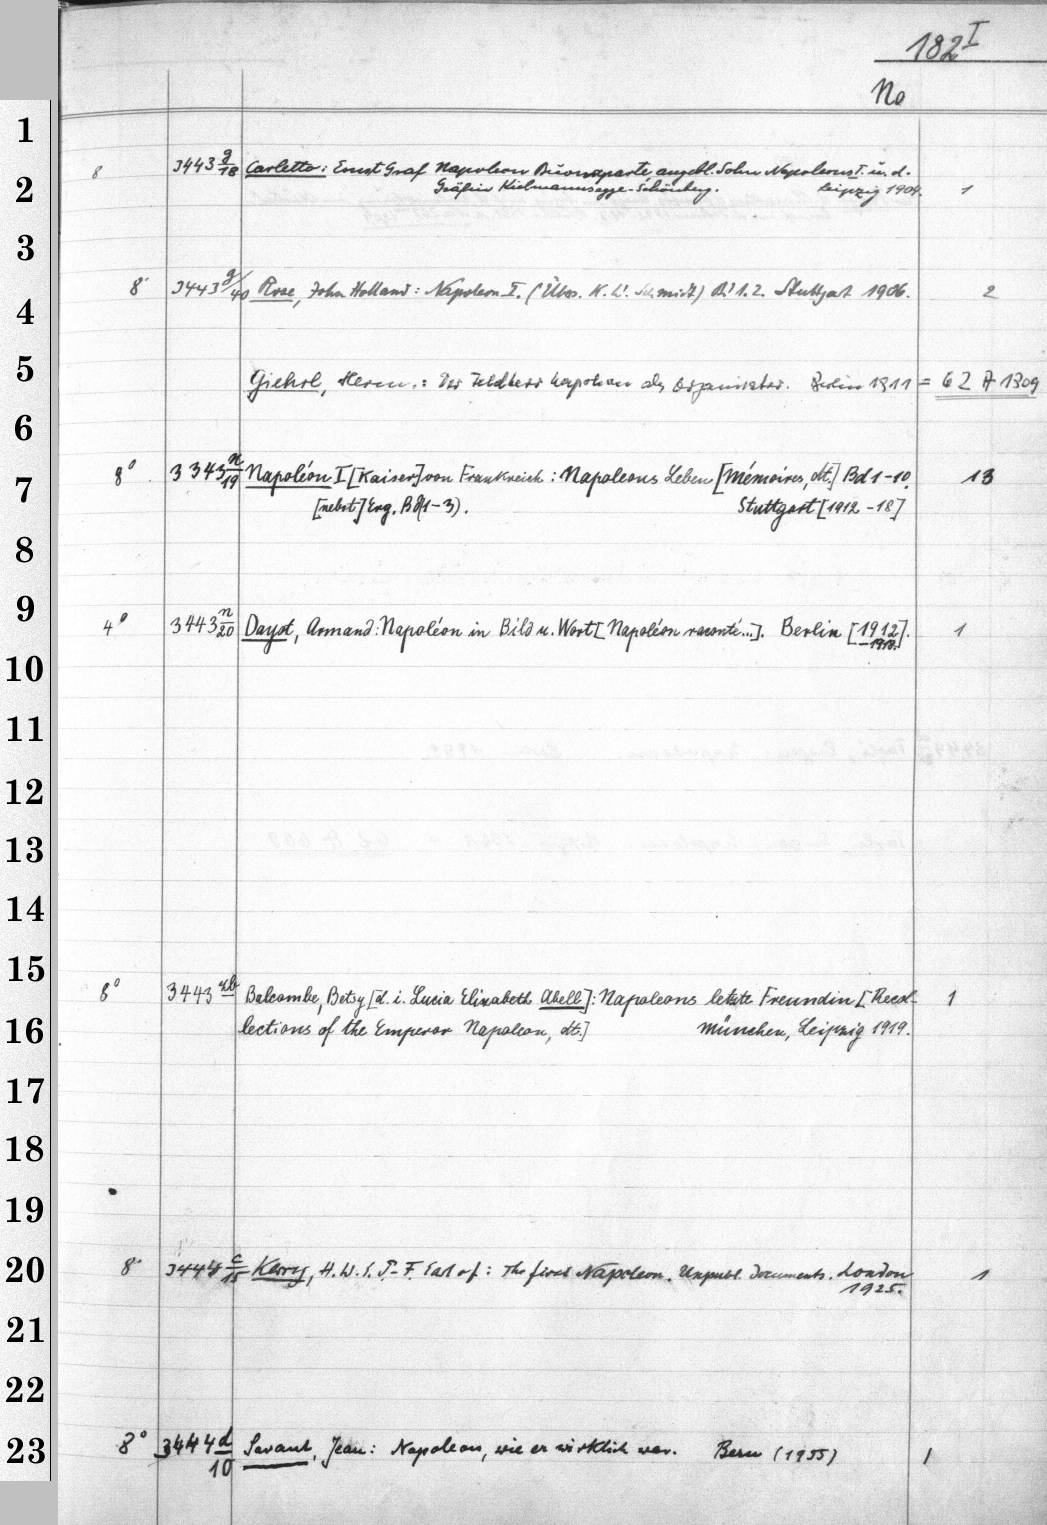 182 I
No
1
2
3
4
5
6
7
8
9
10
11
12
13
14
15
16
17
18
19
20
21
22
23
8 3443 g/18 Carletto: Ernst Graf Napoleon Buonaparte, angebl. Sohn Napoleons I. u. d.
Gräfin Kielmannsegge-Schönberg. Leipzig 1904. 1
8° 3443 g/40 Rose, John Holland: Napoleon I. (Übers. K. W. Schmidt) Bd 1. 2. Stuttgart 1906. 2
Giehrl, Herm.: Der Feldherr Napoleon als Organisator. Berlin 1911 = 62 A 1309
8° 3343 n/19 Napoléon I [Kaiser] von Frankreich: Napoleons Leben [Mémoires, dt.] Bd 1-10.
[nebst] Erg. Bd (1-3). Stuttgart [1912-18] 13
4° 3443 n/20 Dayot, Armand: Napoléon in Bild u. Wort [Napoléon raconté...]. Berlin [1912]. 1
8° 3443 Balcombe, Betsy [d. i. Lucia Elizabeth Abell]: Napoleons letzte Freundin [Recol- 1
lections of the Emperor Napoleon, dt.] München, Leipzig 1919.
8° 3444 c/15 Kerry, H. W. E. P.-F. Earl of: The first Napoleon. Unpubl. Documents. London 1
1925.
8° 3444 d/10 Savant, Jean: Napoleon, wie er wirklich war. Bern (1955) 1